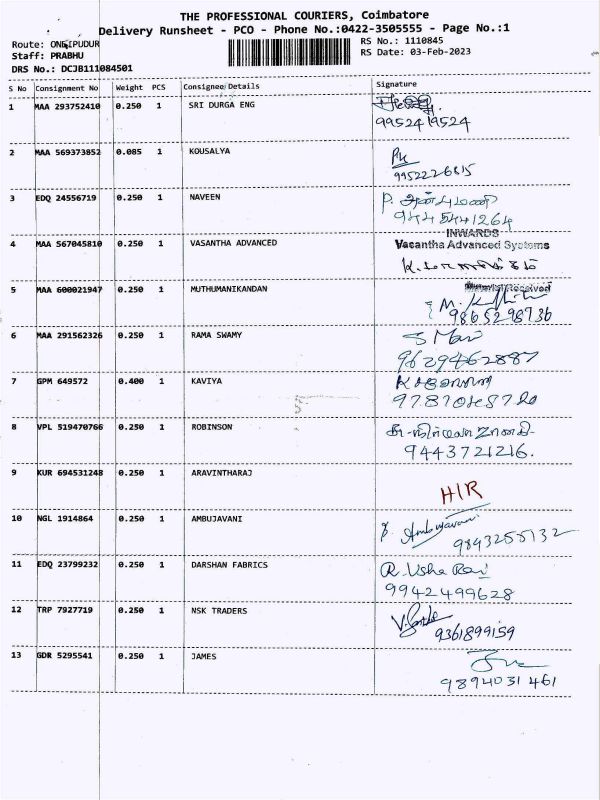 THE PROFESSIONAL COURIERS, Coimbatore
Delivery Runsheet - PCO - Phone No.:0422-3505555 - Page No.:1
Route: ONDIPUDUR
RS No.: 1110845
Staff: PRABHU
RS Date: 03-Feb-2023
DRS No.: DCJB111084501
S No Consignment No Weight PCS Consignee Details Signature
1 MAA 293752410 0.250 1 SRI DURGA ENG
9952419524
2 MAA 569373852 0.085 1 KOUSALYA
9952226815
3 EDQ 24556719 0.250 1 NAVEEN
P.
9445441264
INWARDS
4 MAA 567045810 0.250 1 VASANTHA ADVANCED Vasantha Advanced Systems
Material Received
5 MAA 600021947 0.250 1 MUTHUMANIKANDAN
9865298736
6 MAA 291562326 0.250 1 RAMA SWAMY
9629462887
7 GPM 649572 0.400 1 KAVIYA
8 VPL 519470766 0.250 1 ROBINSON
9443721216.
9 KUR 694531248 0.250 1 ARAVINTHARAJ
H/R
10 NGL 1914864 0.250 1 AMBUJAVANI
Ambujavani
9843255132
11 EDQ 23799232 0.250 1 DARSHAN FABRICS R. Usha Rani
9942499628
12 TRP 7927719 0.250 1 NSK TRADERS
9361899159
13 GDR 5295541 0.250 1 JAMES
9894031461